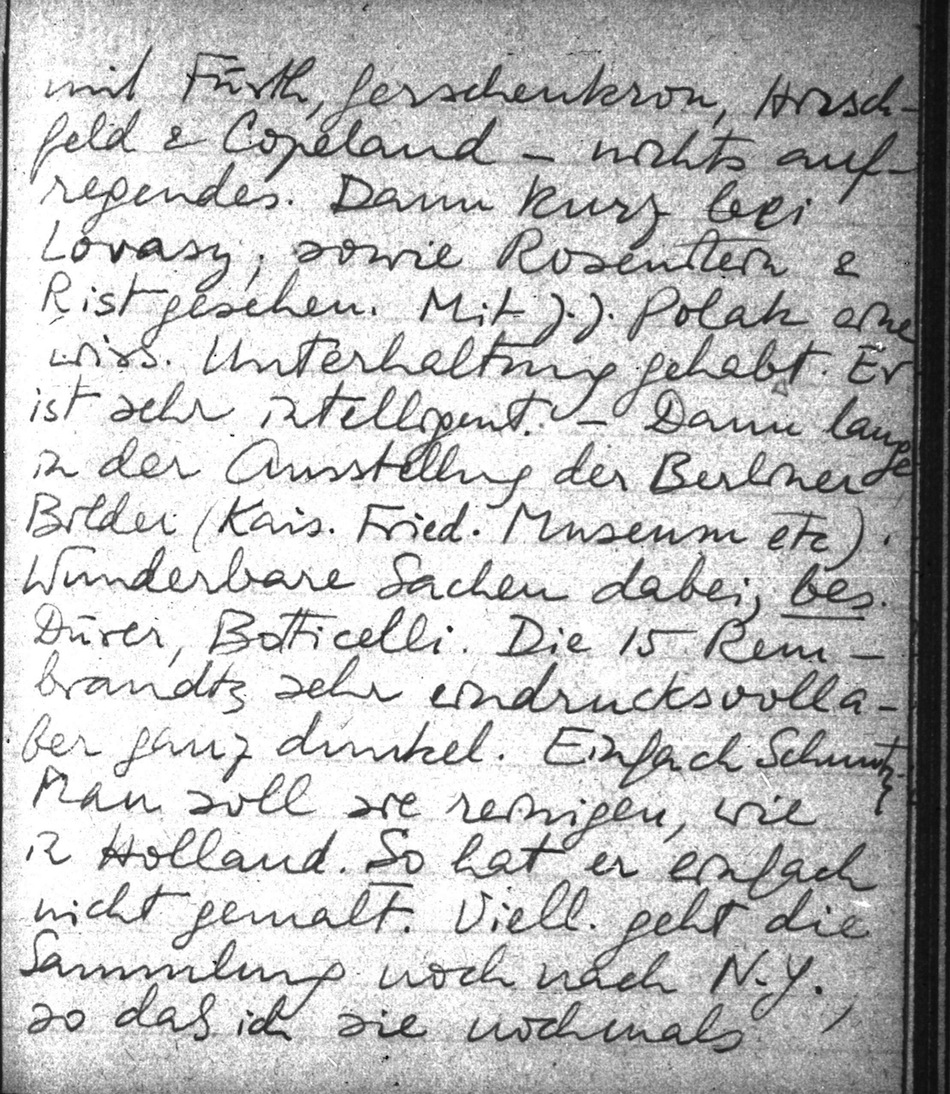 mit Fürth, Gerschenkron, Hirsch-
feld & Copeland – nichts auf-
regendes. Dann kurz bei
Lovasy, sowie Rosenstein &
Rist gesehen. Mit J.J. Polak eine
wiss. Unterhaltung gehabt. Er
ist sehr intelligent. – Dann lange
in der Ausstellung der Berliner
Bilder (Kais. Fried. Museum etc).
Wunderbare Sachen dabei, bes.
Dürer, Botticelli. Die 15 Rem-
brandts sehr eindrucksvoll a-
ber ganz dunkel. Einfach Schmutz.
Man soll sie reinigen, wie
in Holland. So hat er einfach
nicht gemalt. Viell. geht die
Sammlung noch nach N.Y.,
so daß ich sie nochmals